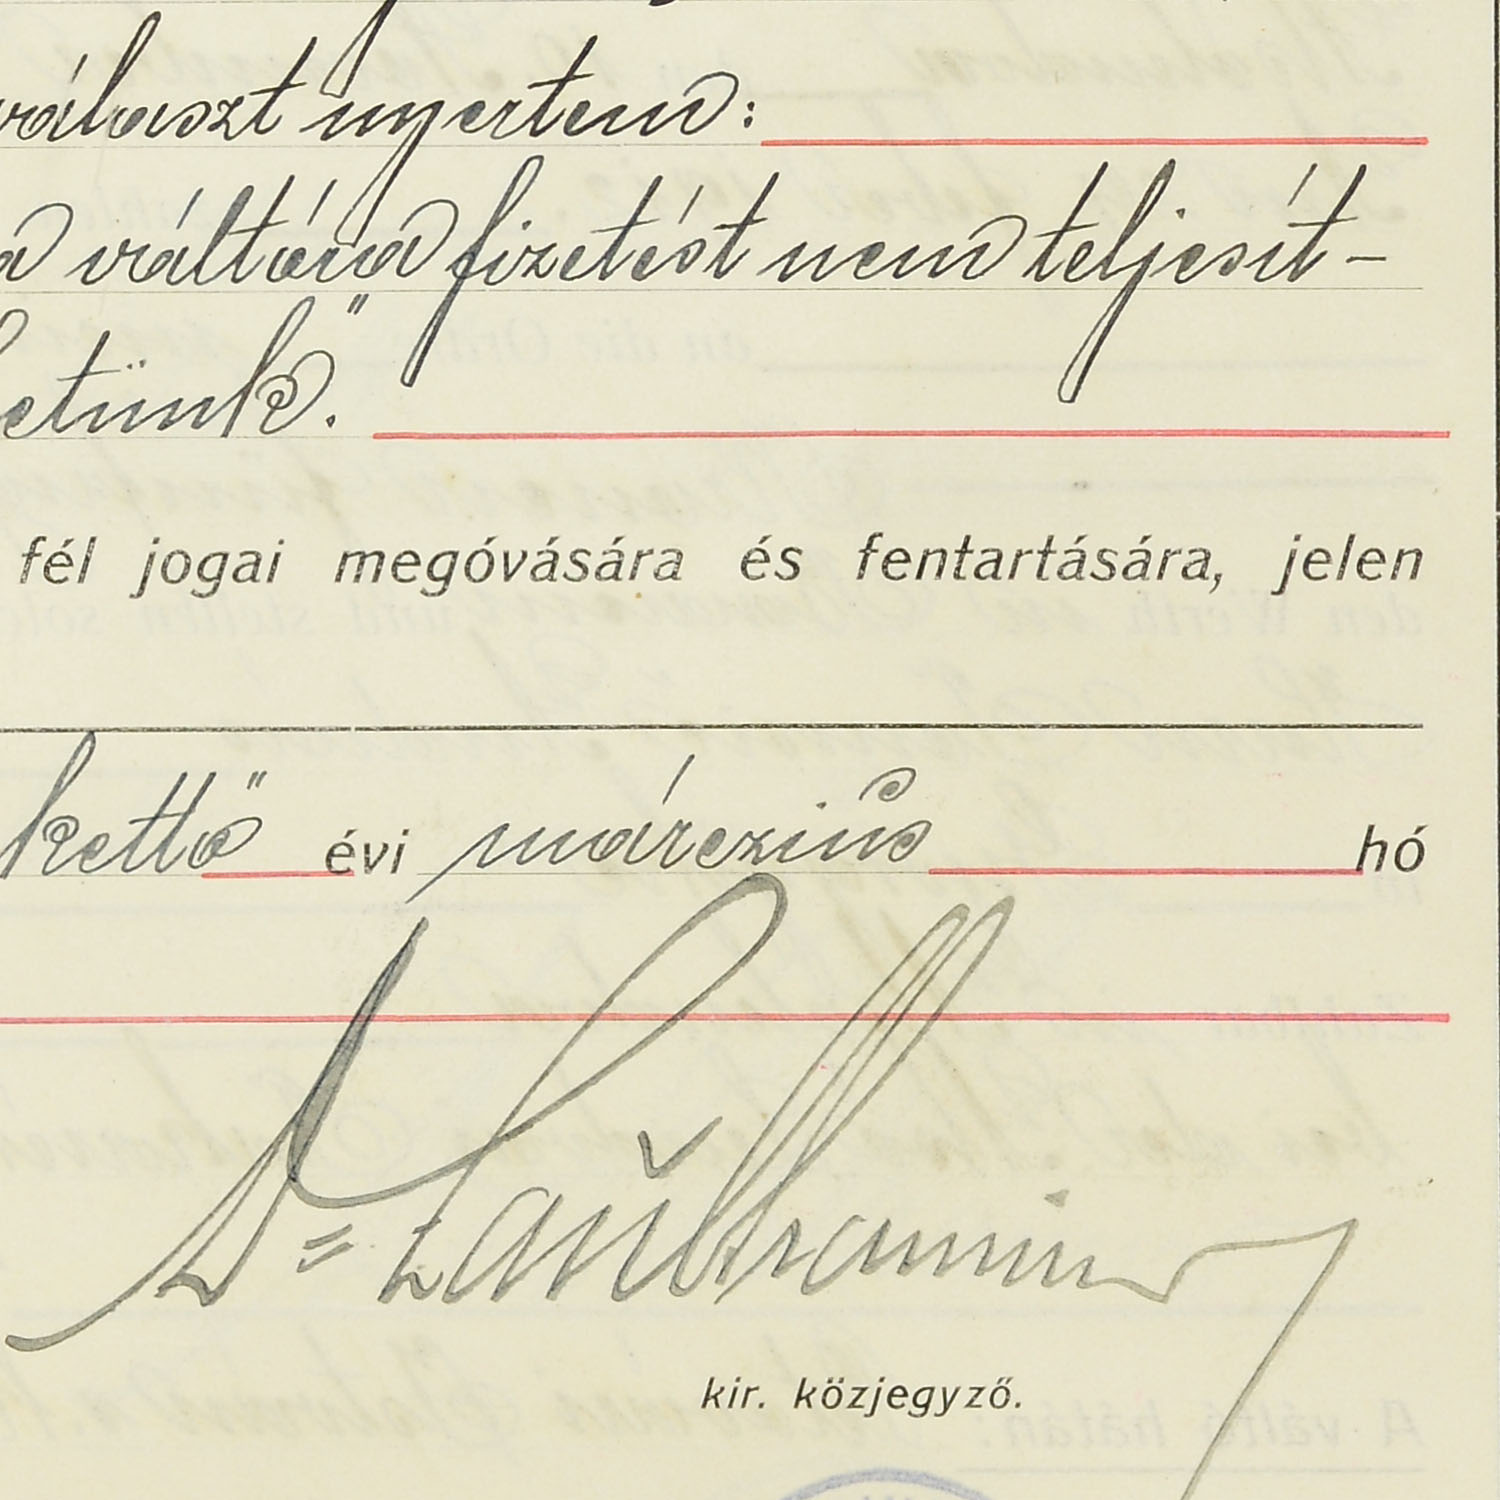 választ nyertem:
a váltóra fizetést nem teljesít-
hetünk."
fél jogai megóvására és fentartására, jelen
kettő évi márczius hó
Dr
kir. közjegyző.